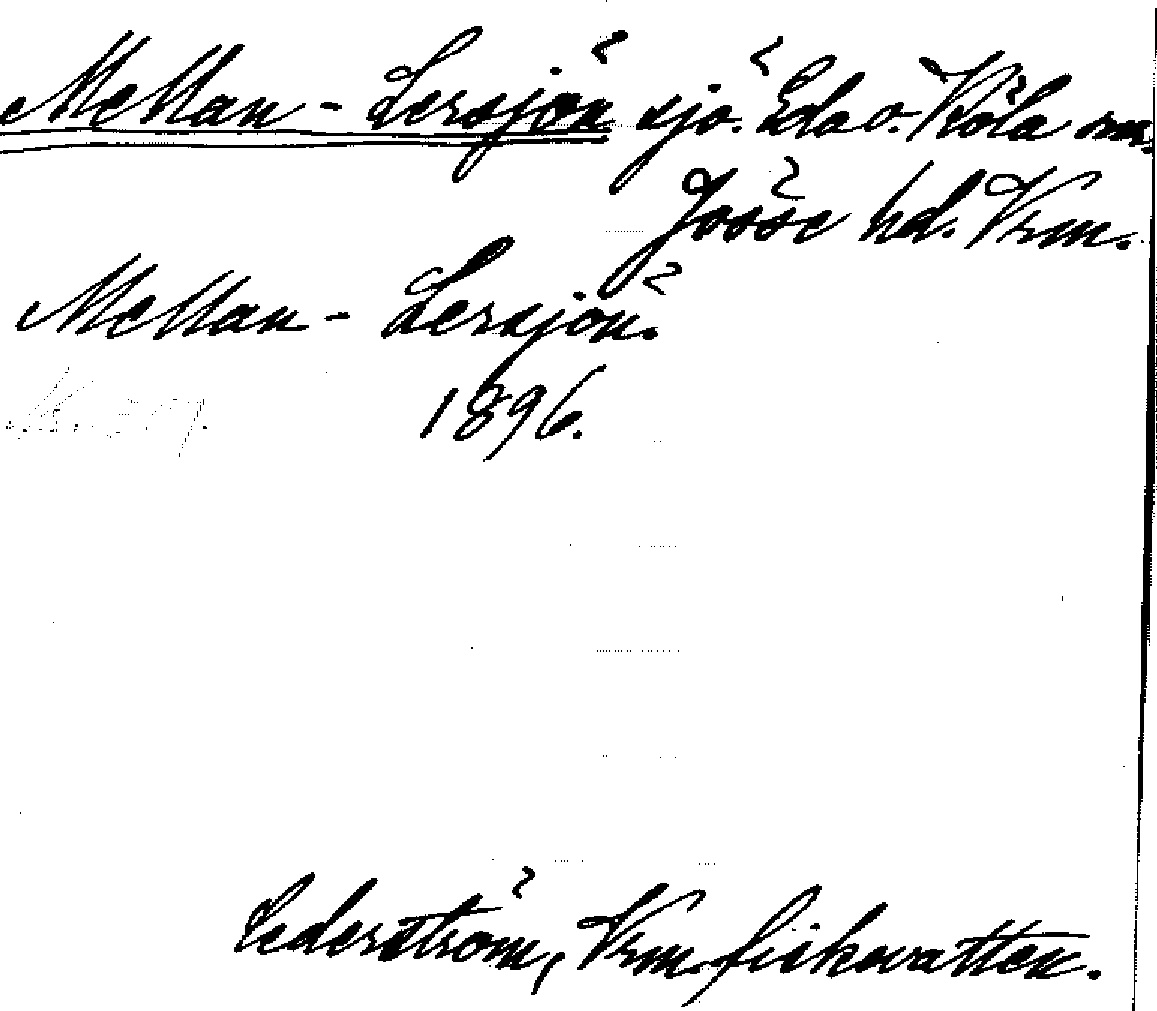 Mellan-Lersjön sjö. Eda o. Köla snr.
Jösse hd. Vrm.
Mellan-Lersjön.
1896.
Cederström, Vrm. fiskevatten.